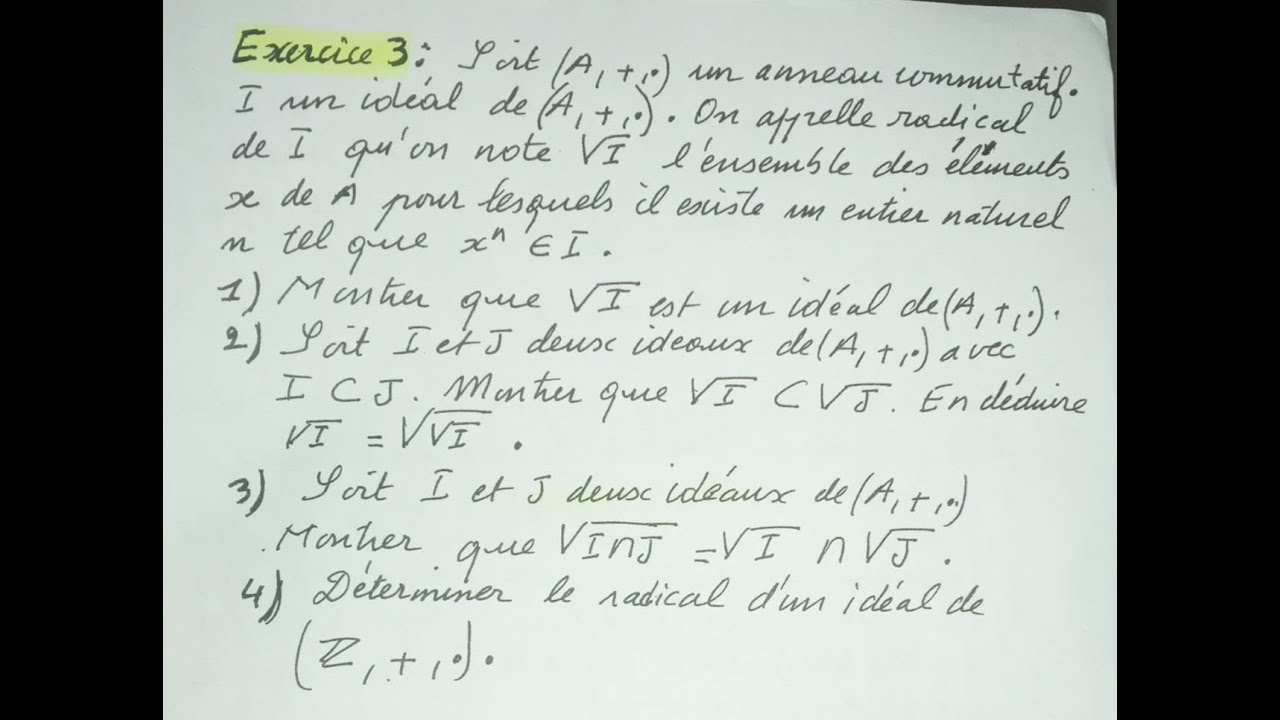 Exercice 3: Soit (A, +, .) un anneau commutatif.
I un idéal de (A, +, .). On appelle radical
de I qu'on note √I l'ensemble des éléments
x de A pour lesquels il existe un entier naturel
n tel que xⁿ ∈ I.
1) Montrer que √I est un idéal de (A, +, .).
2) Soit I et J deux ideaux de (A, +, .) avec
I ⊂ J. Montrer que √I ⊂ √J. En déduire
√I = √√I.
3) Soit I et J deux idéaux de (A, +, .)
Montrer que √I∩J = √I ∩ √J.
4) Déterminer le radical d'un idéal de
(ℤ, +, .).